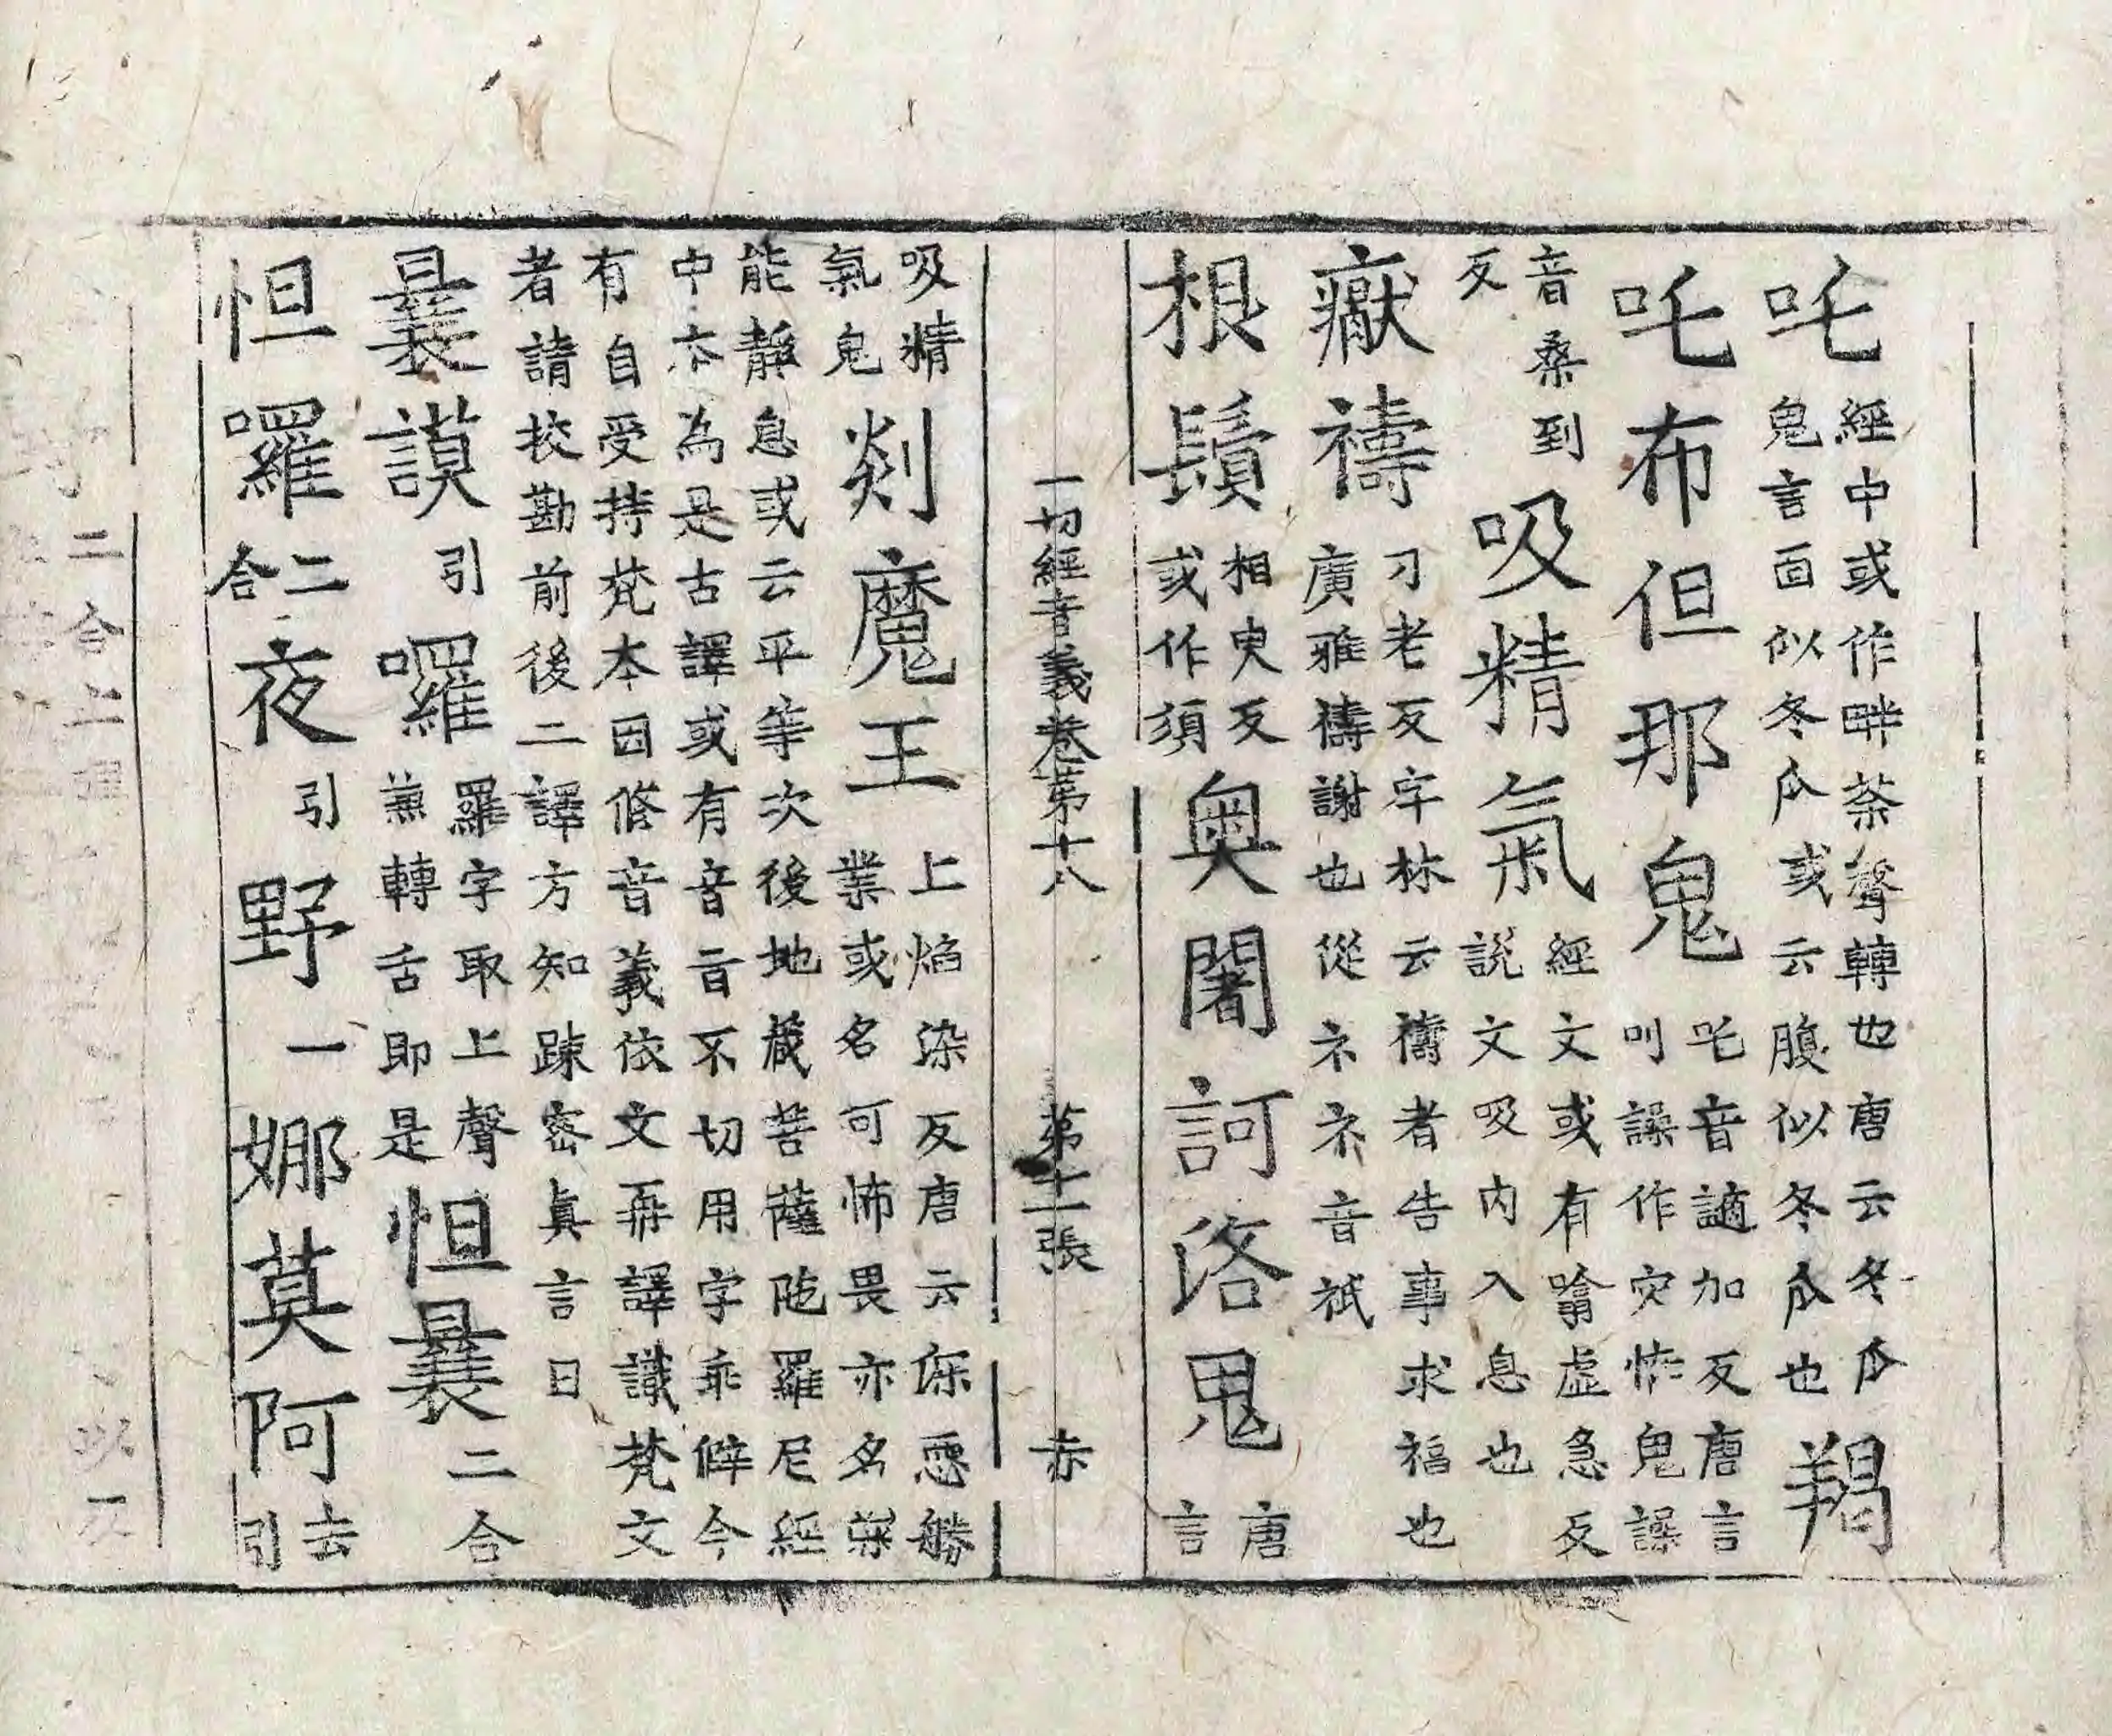 吒經中或作畔荼聲轉也唐云冬瓜
鬼言面似冬瓜或云腹似冬瓜也羯
吒布但那鬼吒音謫加反唐言
叫譟作灾怖鬼譟
音桑到
反吸精氣經文或有噏虛急反
說文吸內入息也
癞禱刁老反字林云禱者告事求福也
廣雅禱謝也從礻礻音祇
根鬚相臾反
或作須奧闍訶洛鬼唐
言
一切經音義卷第十八 第十二張 赤
吸精
氣鬼剡魔王上焰染反唐云
業或名可怖畏亦名
能靜息或云平等次後地藏菩薩陁羅尼經
中夲為是古譯或有音旨不切用字乖僻今
有自受持梵本因修音義依文再譯識梵文
者請挍勘前後二譯方知踈密真言曰
曩謨引囉羅字取上聲
兼轉舌即是怛曩二合
怛囉二
合夜引野一娜莫阿去
引